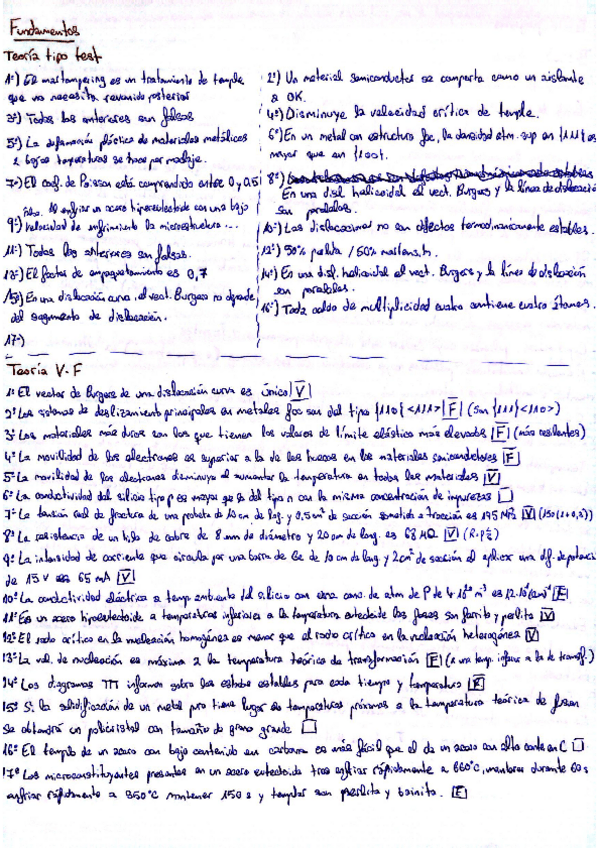 Fundamentos
Teoría tipo test
1º) El martempering es un tratamiento de temple
que no necesita revenido posterior
3º) Todas las anteriores son falsas
5º) La deformación plástica de materiales metálicos
a bajas temperaturas se hace por maclaje.
7º) El coef. de Poisson está comprendido entre 0 y 0,5
Al enfriar un acero hipereutectoide con una bajo
9º) velocidad de enfriamiento la microestructura...
11º) Todas las anteriores son falsas.
13º) El factor de empaquetamiento es 0,7
15º) En una dislocación curva, el vect. Burgers no depende
del segmento de dislocación.
17º)
2º) Un material semiconductor se comporta como un aislante
a 0K.
4º) Disminuye la velocidad crítica de temple.
6º) En un metal con estructura fcc, la densidad atm. sup en {111} es
mayor que en {100}.
8º)
En una disl. helicoidal el vect. Burgers y la línea de dislocació
son paralelas.
10º) Las dislocaciones no son defectos termodinámicamente estables.
12º) 50% perlita / 50% martens.h.
14º) En una disl. helicoidal el vect. Burgers y la línea de dislocación
son paralelas.
16º) Toda celda de multiplicidad cuatro contiene cuatro átomos.
Teoría V-F
1º El vector de Burgers de una dislocación curva es único V
2º Los sistemas de deslizamiento principales en metales fcc son del tipo {110}<111> F (Son {111}<110>)
3º Los materiales más duros son los que tienen los valores de límite elástico más elevados F (más resilentes)
4º La movilidad de los electrones es superior a la de los huecos en los materiales semiconductores F
5º La movilidad de los electrones disminuye al aumentar la temperatura en todos los materiales V
6º La conductividad del silicio tipo p es mayor que la del tipo n con la misma concentración de impurezas
7º La tensión real de fractura de una probeta de 10 cm de long. y 0,5 cm² de sección sometida a tracción es 195 MPa V (150(1+0,3))
8º La resistencia de un hilo de cobre de 8 mm de diámetro y 20 cm de long. es 68 V
9º La intensidad de corriente que circula por una barra de Ge de 10 cm de long. y 2cm² de sección al aplicar una dif. de potenci
de 15 V es 65 mA V
10º La conductividad eléctrica a temp. ambiente del silicio con una conc. de atm de P de F
11º En un acero hipoeutectoide a temperaturas inferiores a la temperatura eutectoide las fases son ferrita y perlita V
12º El radio crítico en la nucleación homogénea es menor que el radio crítico en la nucleación heterogénea V
13º La vel. de nucleación es máxima a la temperatura teórica de transformación F (a una temp. inferior a la de transf.)
14º Los diagramas TTT informan sobre los estados estables para cada tiempo y temperatura
15º Si la solidificación de un metal pro tiene lugar de temperaturas próximas a la temperatura teórica de fusión
se obtendrá un policristal con tamaño de grano grande
16º El temple de un acero con bajo contenido en carbono es más fácil que el de un acero con alto cont. en C
17º Los microconstituyentes presentes en un acero eutectoide tras enfriar rápidamente a 660ºC, mantener durante 60 s
enfriar rápidamente a 350ºC mantener 150 s y templar son perlita y bainita. F